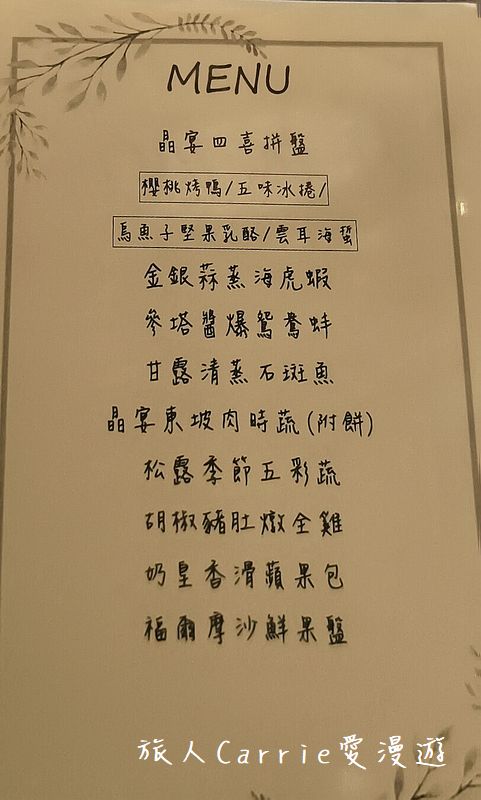 MENU
晶宴四喜拼盤
櫻桃烤鴨/五味冰捲/
烏魚子堅果乳酪/雲耳海蜇
金銀蒜蒸海虎蝦
參塔醬爆鴛鴦蚌
甘露清蒸石斑魚
晶宴東坡肉時蔬(附餅)
松露季節五彩蔬
胡椒豬肚燉全雞
奶皇香滑蘋果包
福爾摩沙鮮果盤
旅人Carrie愛漫遊